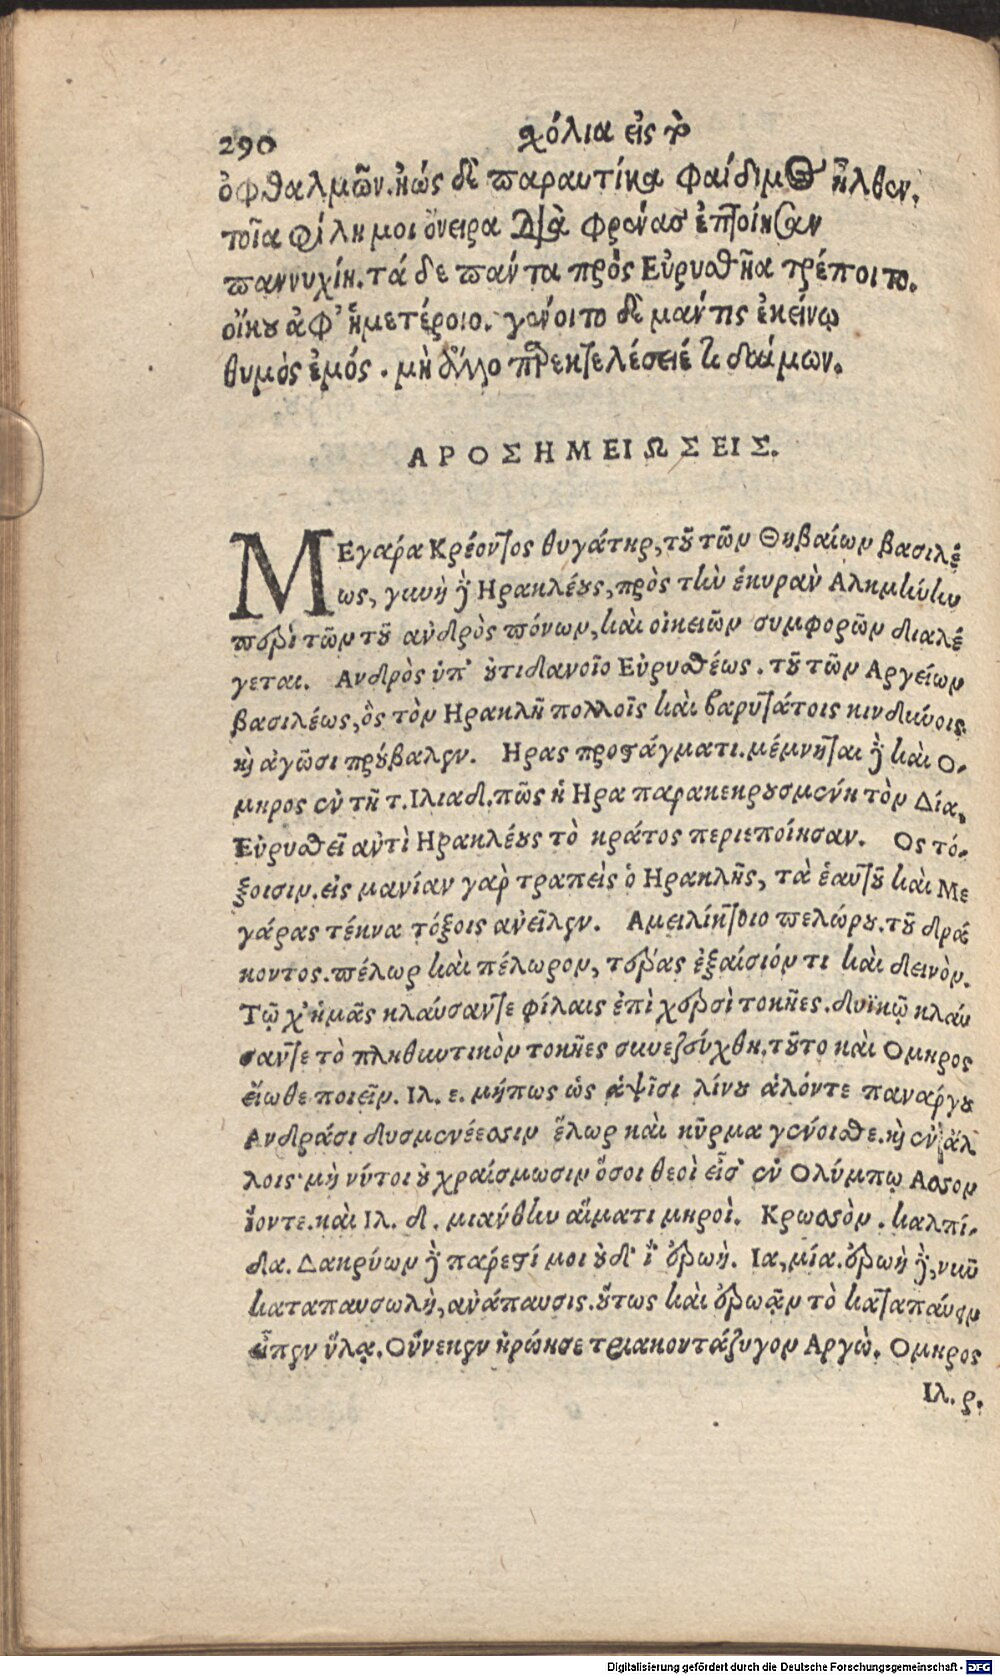 290 σχόλια εἰς τὸ
ὀφθαλμῶν. ἠώς δὲ παραυτίκα φαίδιμος ἦλθεν.
τοῖα φίλη μοι ὄνειρα διὰ φρένας ἐπτοίησαν
παννυχίη. τά δε πάντα πρὸς Εὐρυσθῆα τρέποιτο.
οἴκου ἀφ' ἡμετέροιο. γένοιτο δὲ μάντις ἐκείνῳ
θυμὸς ἐμός. μὴ δ' ἄλλο παρὲκ τελέσειέ τι δαίμων.
ΑΡΟΣΗΜΕΙΩΣΕΙΣ.
ΜΕγάρα Κρέοντος θυγάτηρ, τοῦ τῶν Θηβαίων βασιλέ
ως, γυνὴ δὲ Ηρακλέους, πρὸς τὴν ἑκυρὰν Αλκμήνην
περὶ τῶν τοῦ ἀνδρὸς πόνων, καὶ οἰκειῶν συμφορῶν διαλέ
γεται. Ανδρὸς ὑπ' οὐτιδανοῖο Εὐρυσθέως. τοῦ τῶν Αργείων
βασιλέως, ὃς τὸν Ηρακλῆ πολλοῖς καὶ βαρυτάτοις κινδύνοις
καὶ ἀγῶσι προύβαλεν. Ηρας προστάγματι. μέμνηται δὲ καὶ Ο-
μηρος ἐν τῆ τ. Ιλιαδ. πῶς ἡ Ηρα παρακεκρουσμένη τὸν Δία,
Εὐρυσθεῖ αὐτὶ Ηρακλέους τὸ κράτος περιεποίησαν. Ος τό-
ξοισιν. εἰς μανίαν γαρ τραπεὶς ὁ Ηρακλῆς, τὰ ἑαυτοῦ καὶ Με
γάρας τέκνα τόξοις ἀνεῖλεν. Αμειλίκτοιο πελώρου. τοῦ δρά
κοντος. πέλωρ καὶ πέλωρον, τέρας ἐξαίσιόν τι καὶ δεινὸν.
Τῷ χ' ἡμᾶς κλαύσαντε φίλαις ἐπὶ χερσὶ τοκῆες. δυϊκῷ κλαύ
σαντε τὸ πληθυντικὸν τοκῆες συνεζεύχθη. τοῦτο καὶ Ομηρος
εἴωθε ποιεῖν. Ιλ. ε. μήπως ὡς ἁψῖσι λίνου ἁλόντε πανάργου
Ανδράσι δυσμενέεσσιν ἕλωρ καὶ κῦρμα γένοισθε. καὶ ἐν ἄλ
λοις· μὴ νύτοι οὐ χραίσμωσιν ὅσοι θεοὶ εἰσ' ἐν Ολύμπῳ Ασσον
ἰόντε. καὶ Ιλ. δ. μιάνθην αἵματι μηροὶ. Κρωσσὸν. καλπί-
δα. Δακρύων δὲ πάρεστί μοι οὐδ' ἴ' ἐρωή. Ια, μία. ἐρωὴ δὲ, νῦν
καταπαυσωλὴ, ἀνάπαυσις. οὕτως καὶ ἐρωᾷν τὸ καταπαύειν
εἶπεν ὕλᾳ. Οὕνεκεν ἠρώησε τριακοντάζυγον Αργὼ. Ομηρος
Ιλ. ρ.
Digitalisierung gefördert durch die Deutsche Forschungsgemeinschaft - DFG